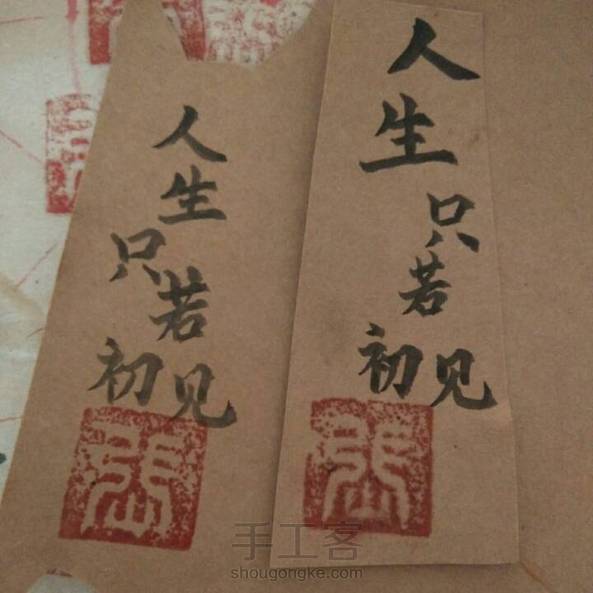 人生
只若
初见
人生
只若
初见
手工客
shougongke.com